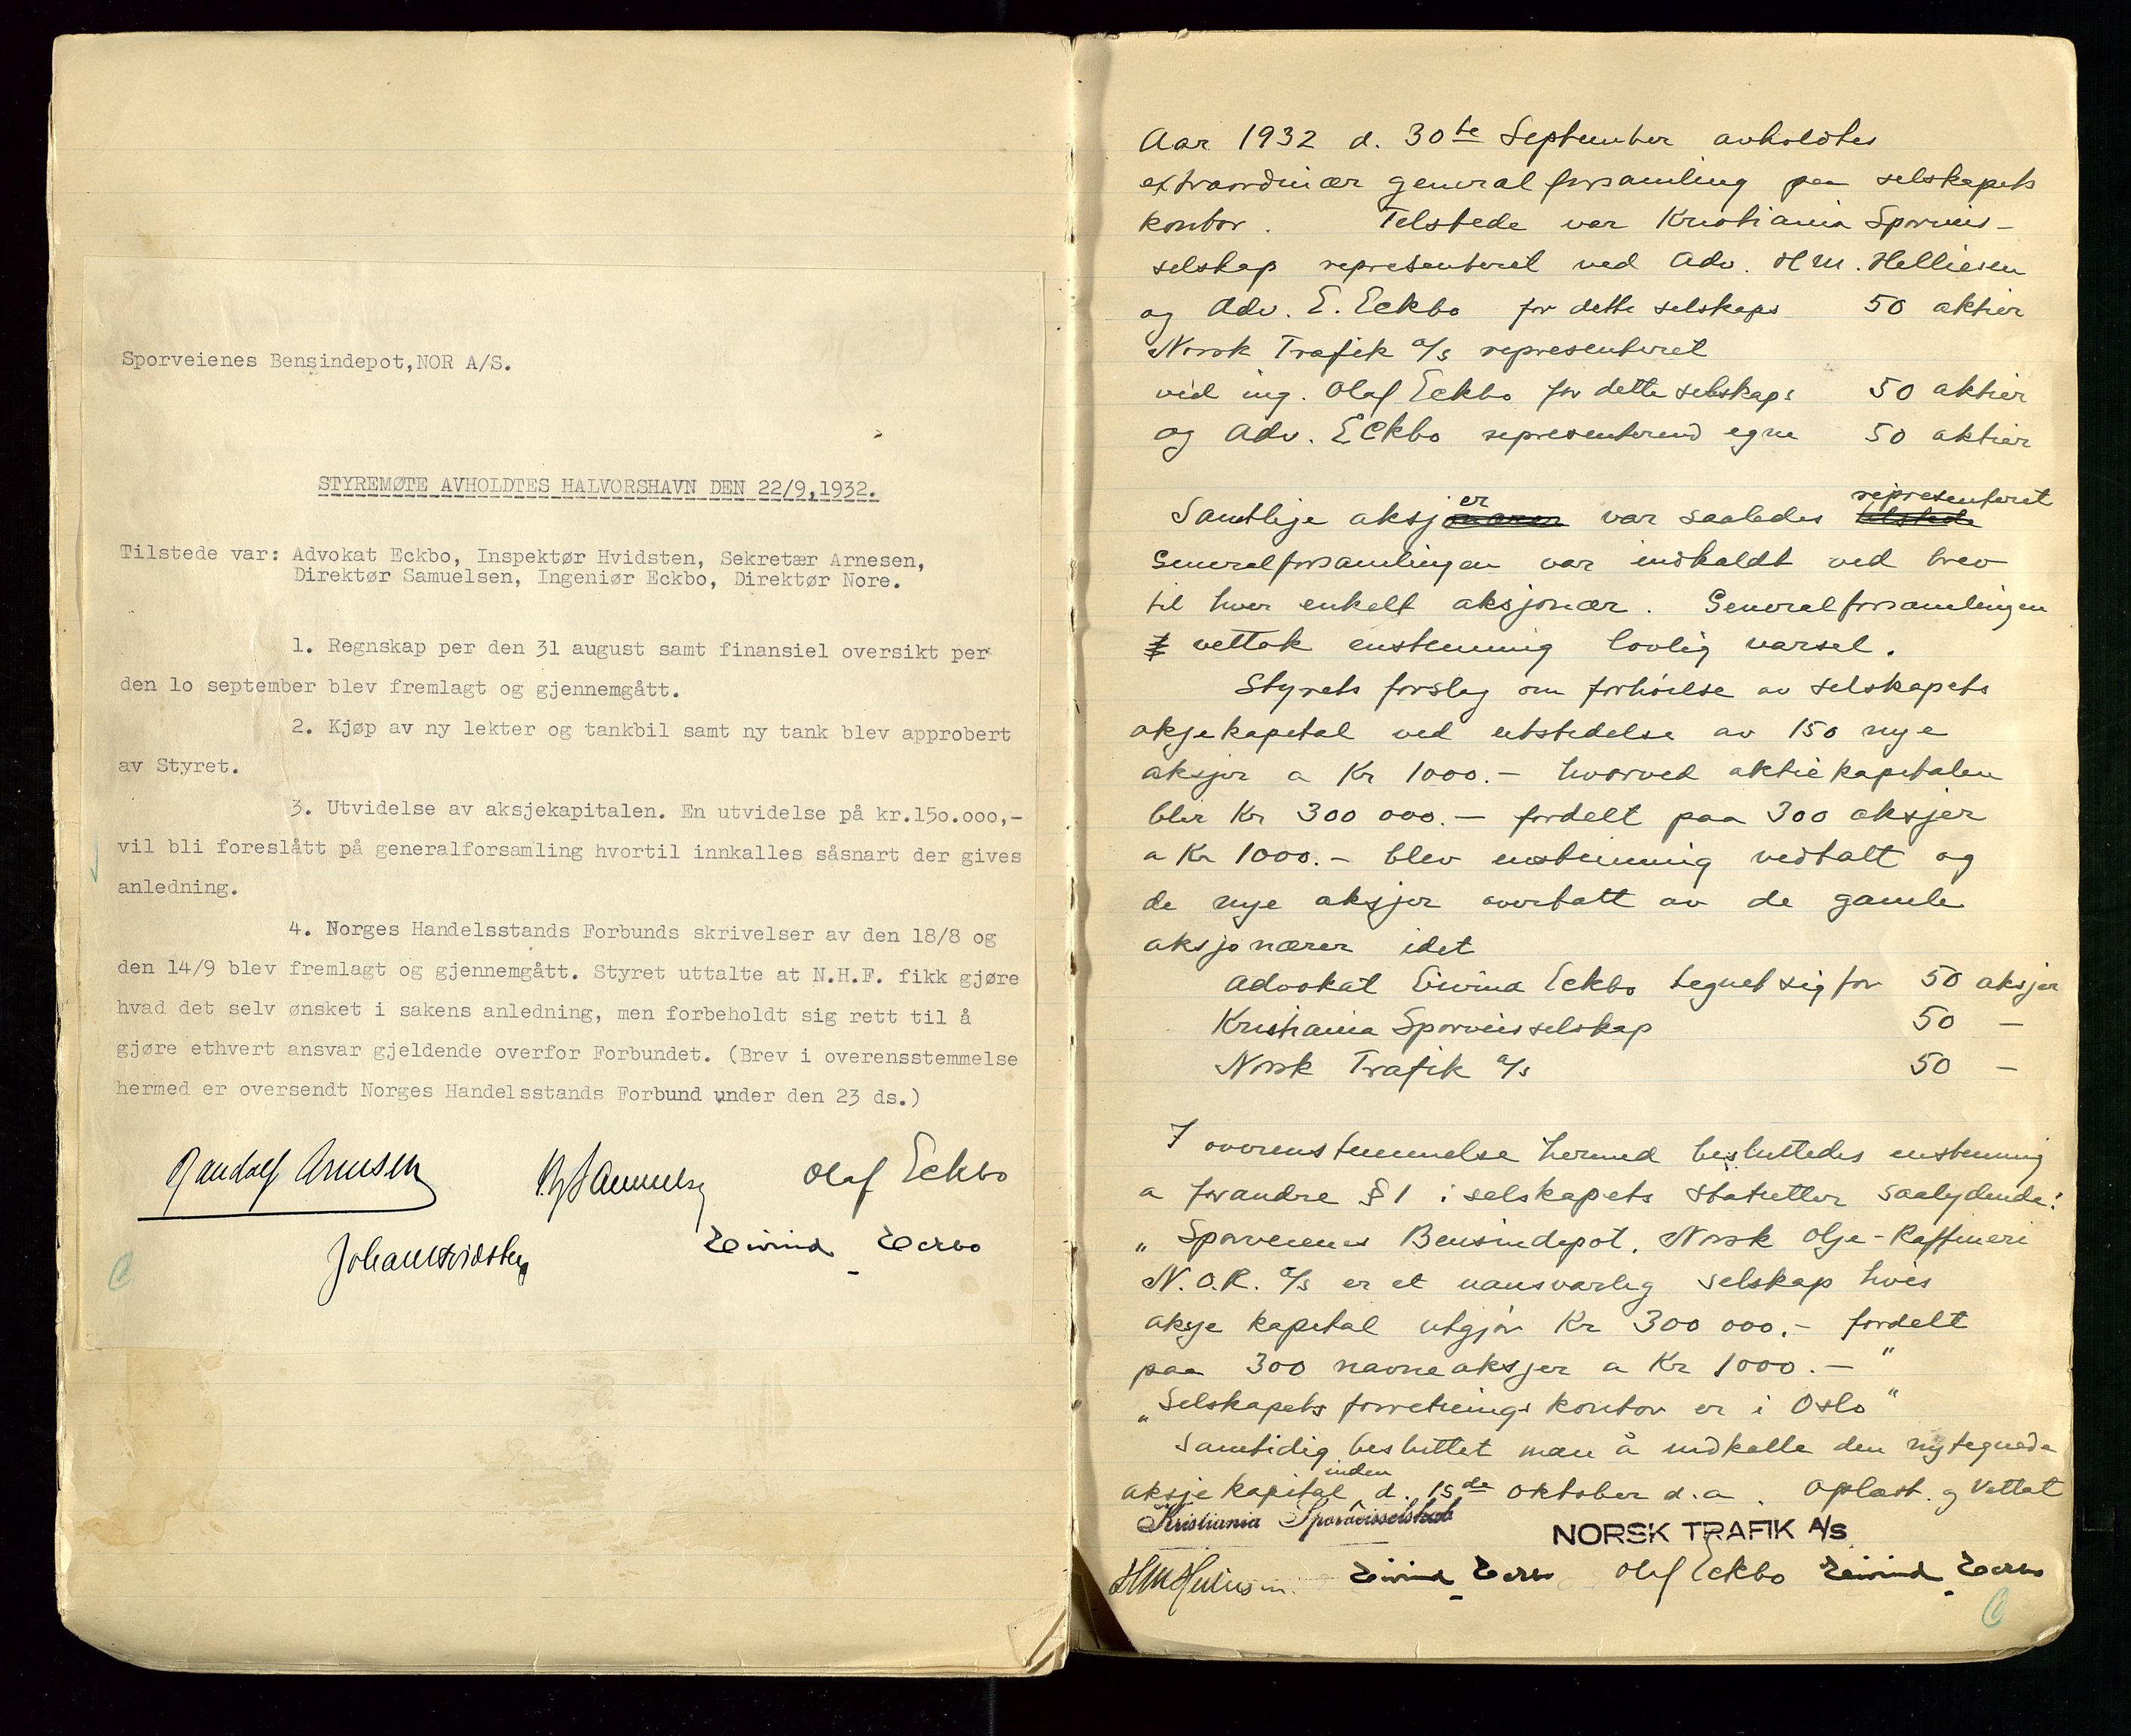 Sporveienes Bensindepot,NOR A/S.
STYREMØTE AVHOLDTES HALVORSHAVN DEN 22/9,1932.
Tilstede var: Advokat Eckbo, Inspektør Hvidsten, Sekretær Arnesen,
Direktør Samuelsen, Ingeniør Eckbo, Direktør Nore.
1. Regnskap per den 31 august samt finansiel oversikt per
den 1o september blev fremlagt og gjennemgått.
2. Kjøp av ny lekter og tankbil samt ny tank blev approbert
av Styret.
3. Utvidelse av aksjekapitalen. En utvidelse på kr.15o.ooo,-
vil bli foreslått på generalforsamling hvortil innkalles såsnart der gives
anledning.
4. Norges Handelsstands Forbunds skrivelser av den 18/8 og
den 14/9 blev fremlagt og gjennemgått. Styret uttalte at N.H.F. fikk gjøre
hvad det selv ønsket i sakens anledning, men forbeholdt sig rett til å
gjøre ethvert ansvar gjeldende overfor Forbundet. (Brev i overensstemmelse
hermed er oversendt Norges Handelsstands Forbund under den 23 ds.)
Randolf Arnesen Olaf Eckbo
Johan Hvidsten Eivind Eckbo
Aar 1932 d. 30te September avholdtes
extraordinær generalforsamling paa selskapets
kontor. Tilstede var Kristiania Sporveis-
selskap representeret ved Adv. H M. Helliesen
og Adv. E. Eckbo for dette selskaps 50 aktier
Norsk Trafik A/s representeret
ved ing. Olaf Eckbo for dette selskaps 50 aktier
og Adv. Eckbo representerend egne 50 aktier
Samtlige aksjer var saaledes representeret
Generalforsamlingen var indkaldt ved brev
til hver enkelt aksjonær. Generalforsamlingen
vettok enstemmig lovlig varsel.
Styrets forslag om forhøielse av selskapets
aksjekapital ved utstedelse av 150 nye
aksjer a Kr 1000.- hvorved aktiekapitalen
blir Kr 300 000.- fordelt paa 300 aksjer
a Kr 1000.- blev enstemmig vedtatt og
de nye aksjer overtatt av de gamle
aksjonærer idet
Advokat Eivind Eckbo tegnet sig for 50 aksjer
Kristiania Sporveisselskap 50 -
Norsk Trafik A/s 50 -
I overenstemmelse hermed besluttedes enstemmig
a forandre § 1 i selskapets statutter saalydende:
„Sporveienes Bensindepot, Norsk Olje-Raffineri
N.O.R. A/s er et uansvarlig selskap hvis
aksje kapital utgjør Kr 300 000.- fordelt
paa 300 navneaksjer a Kr 1000.-"
„Selskapets forretnings kontor er i Oslo"
Samtidig besluttet man å indkalle den nytegnede
aksjekapital inden d. 15de oktober d.a. Oplæst og vettat
Kristiania Sporveisselskab
NORSK TRAFIK A/S
HM Helliesen Eivind Eckbo Olaf Eckbo Eivind Eckbo